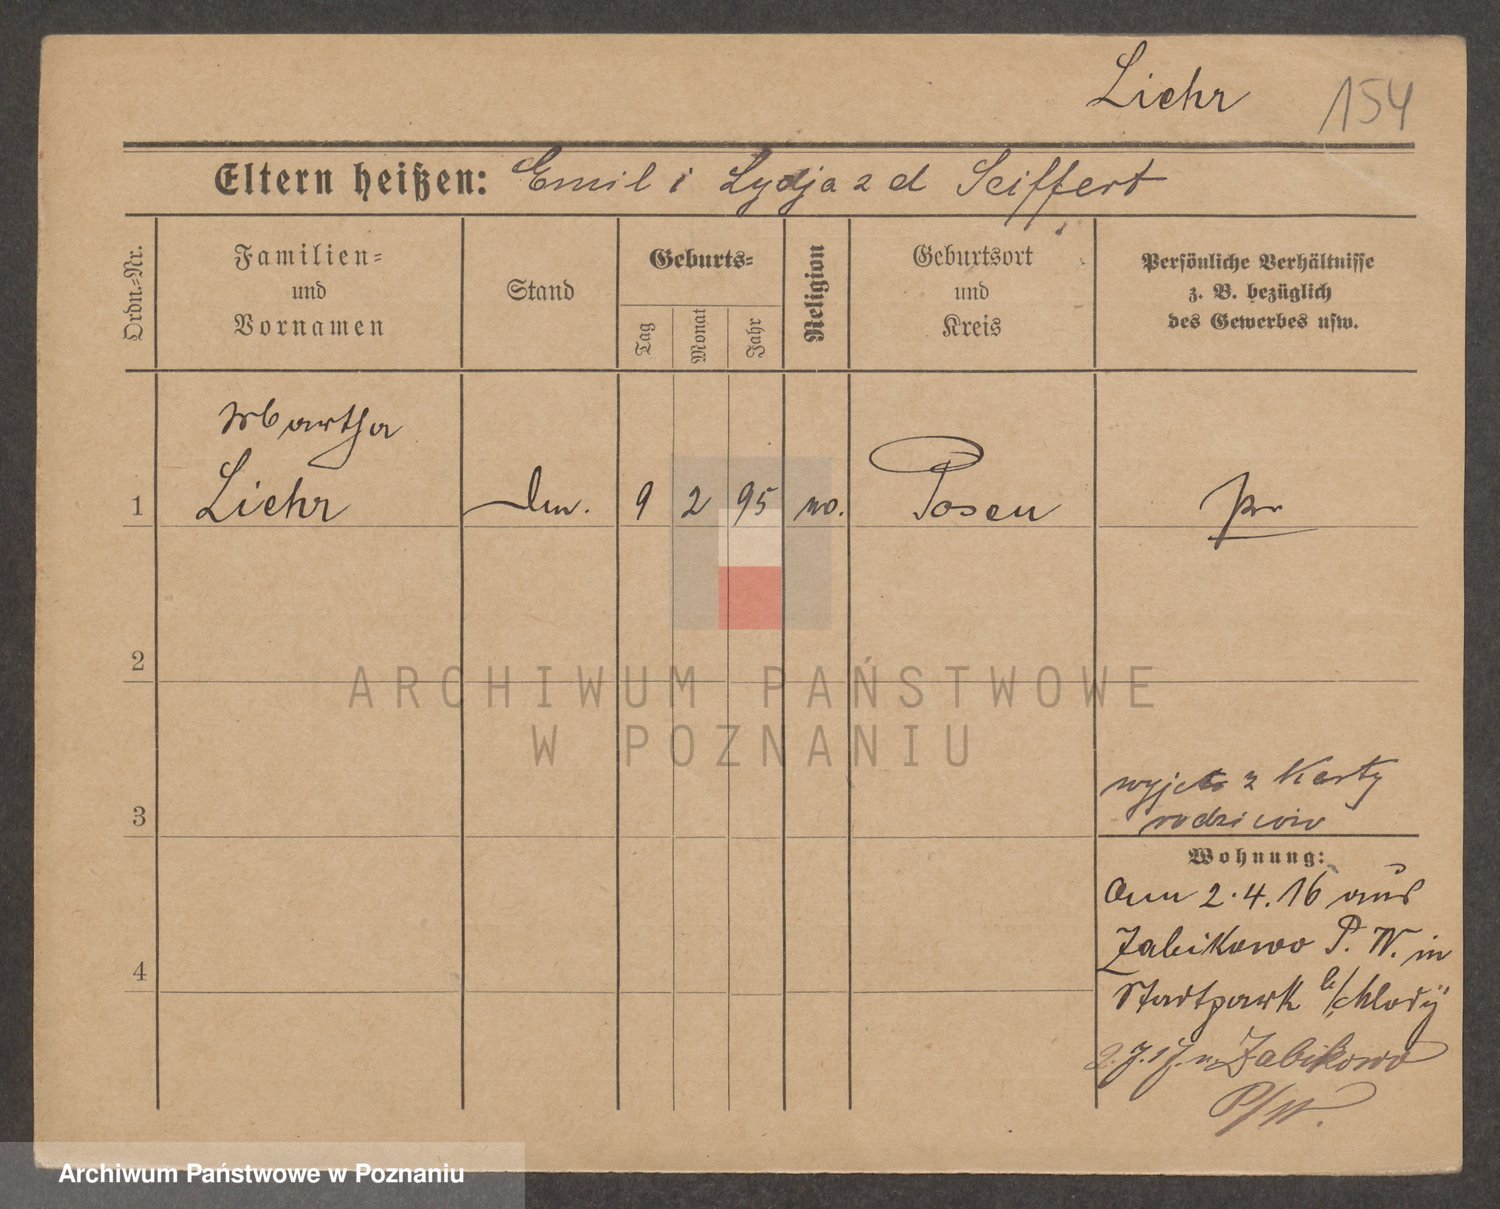 Liehr 154
Eltern heißen: Emil i Lydja z d Seiffert
Ordn.-Nr.
Familien-
und
Vornamen
Stand
Geburts-
Tag
Monat
Jahr
Religion
Geburtsort
und
Kreis
Persönliche Verhältnisse
z. B. bezüglich
des Gewerbes usw.
Martha
1 Liehr 9 2 95 Posen Pr
2
ARCHIWUM PAŃSTWOWE
W POZNANIU
3
wyjęto z Karty
rodziców
Wohnung:
Am 2.4.16 aus
Zabikowo P. W. in
Stadtpark b/
4
Zabikowo
P/W.
Archiwum Państwowe w Poznaniu